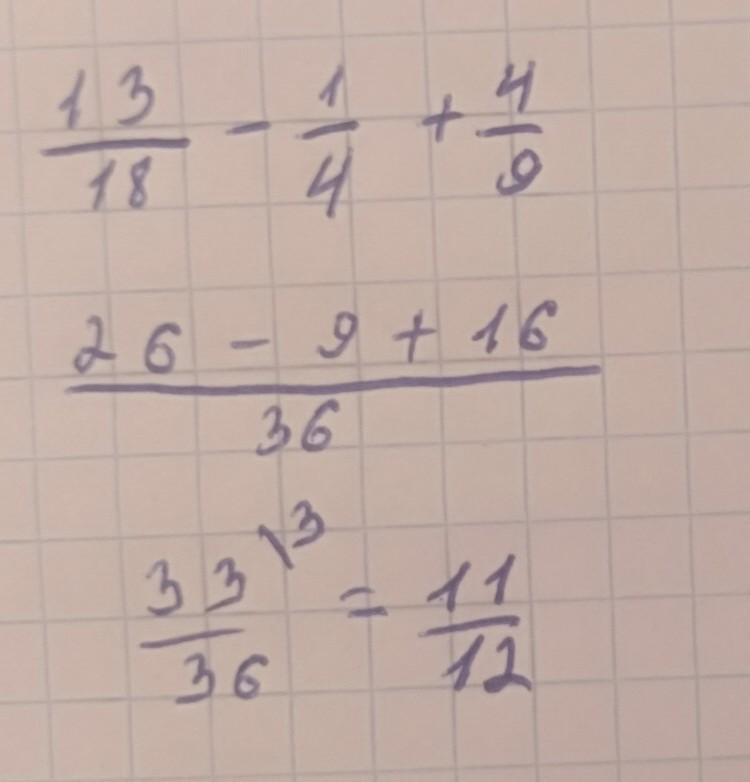 13/18 - 1/4 + 4/9
26 - 9 + 16 / 36
33/36 \3 = 11/12